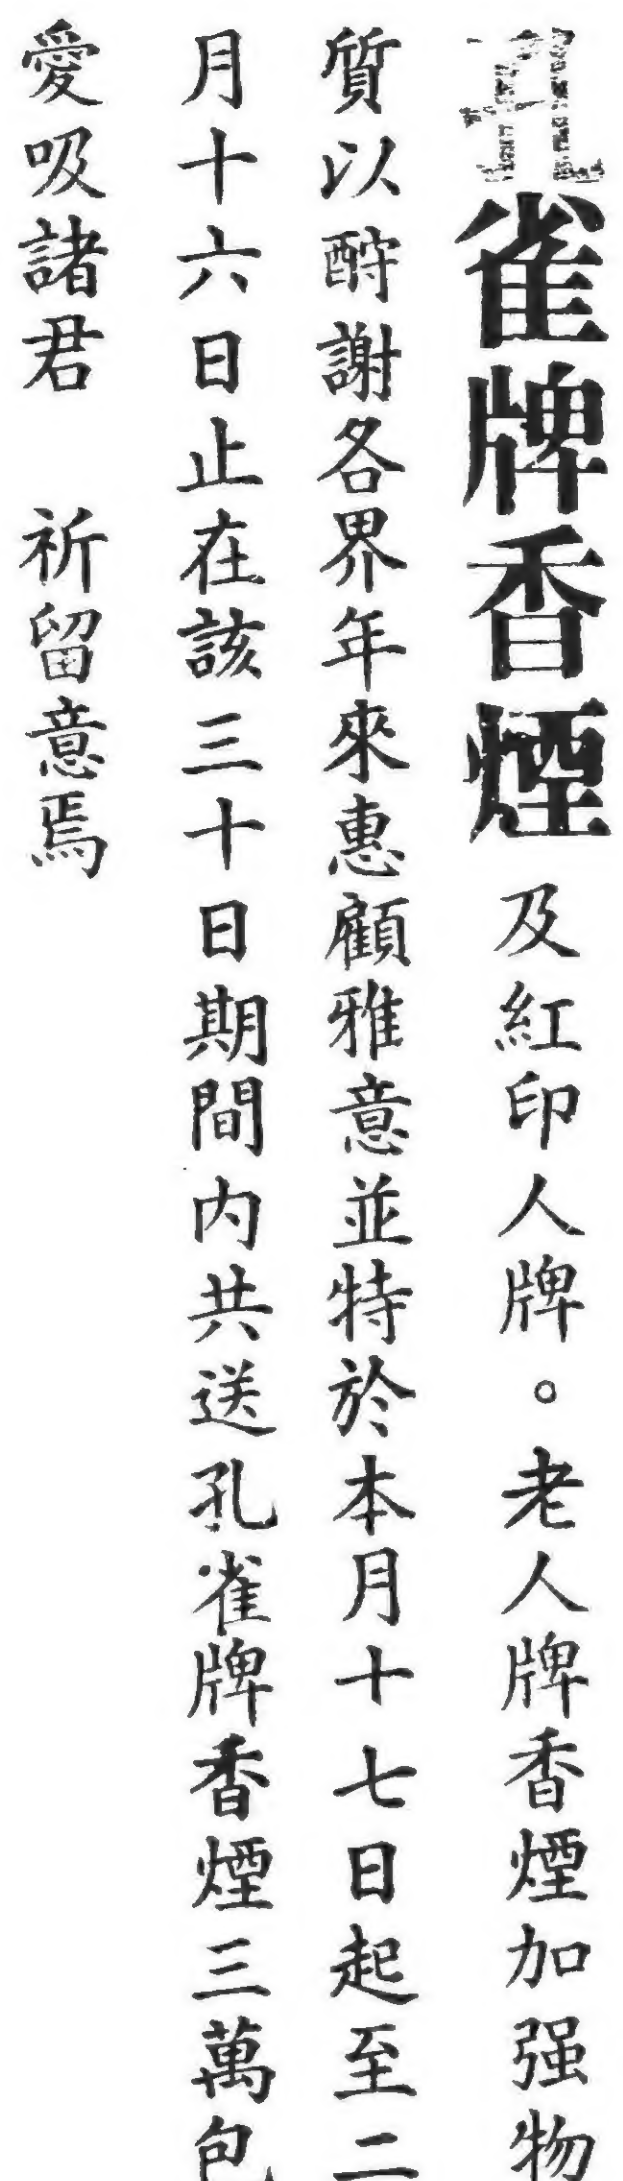 孔雀牌香煙及紅印人牌。老人牌香煙加强物
質以酧謝各界年來惠顧雅意並特於本月十七日起至二
月十六日止在該三十日期間內共送孔雀牌香煙三萬包
愛吸諸君　祈留意焉